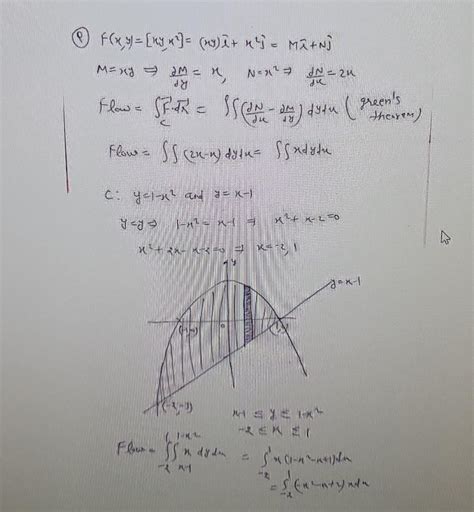 Ⓠ F(x,y) = [xy, x²] = (xy)î + x²ĵ = Mî + Nĵ
M = xy ⇒ ∂M/∂y = x, N = x² ⇒ ∂N/∂x = 2x
Flow = ∫_C F⃗·dr⃗ = ∬(∂N/∂x − ∂M/∂y) dydx (green's theorem)
Flow = ∬(2x−x) dydx = ∬ x dydx
C: y = 1−x² and y = x−1
y = y ⇒ 1−x² = x−1 ⇒ x²+x−2 = 0
x²+2x−x−2 = 0 ⇒ x = −2, 1
y
y = x−1
0
(−2,−3)
x−1 ≤ y ≤ 1−x²
−2 ≤ x ≤ 1
Flow = ∫_{−2}^{1} ∫_{x−1}^{1−x²} x dydx = ∫_{−2}^{1} x(1−x²−x+1)dx
= ∫_{−2}^{1} (−x²−x+2)xdx